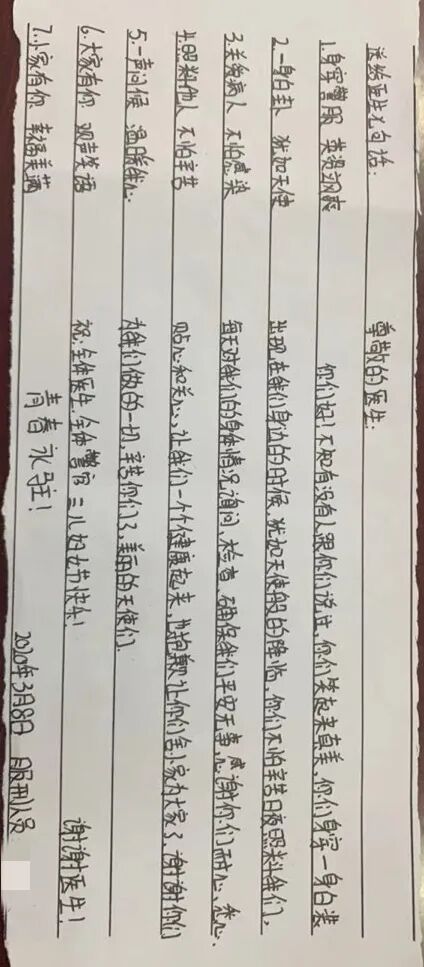 送给医生几句话:
1.身穿警服 英姿飒爽
2.一身白衣 犹如天使
3.关爱病人 不怕感染
4.照料他人 不怕辛苦
5.一声问候 温暖我心
6.大家有你 欢声笑语
7.小家有你 幸福美满
尊敬的医生:
你们好!不知有没有人跟你们说过,你们笑起来真美,你们身穿一身白装
出现在我们身边的时候,犹如天使般的降临,你们不怕辛苦日夜照料我们,
每天对我们的身体情况询问、检查,确保我们平安无事,感谢你们耐心、爱心、
贴心和关心,让我们一个个健康起来,也抱歉让你们舍小家为大家了,谢谢你们
为我们做的一切,辛苦你们了,美丽的天使们.
祝:全体医生、全体警官 三八妇女节快乐!
青春永驻! 谢谢医生!
2020年3月8日 服刑人员